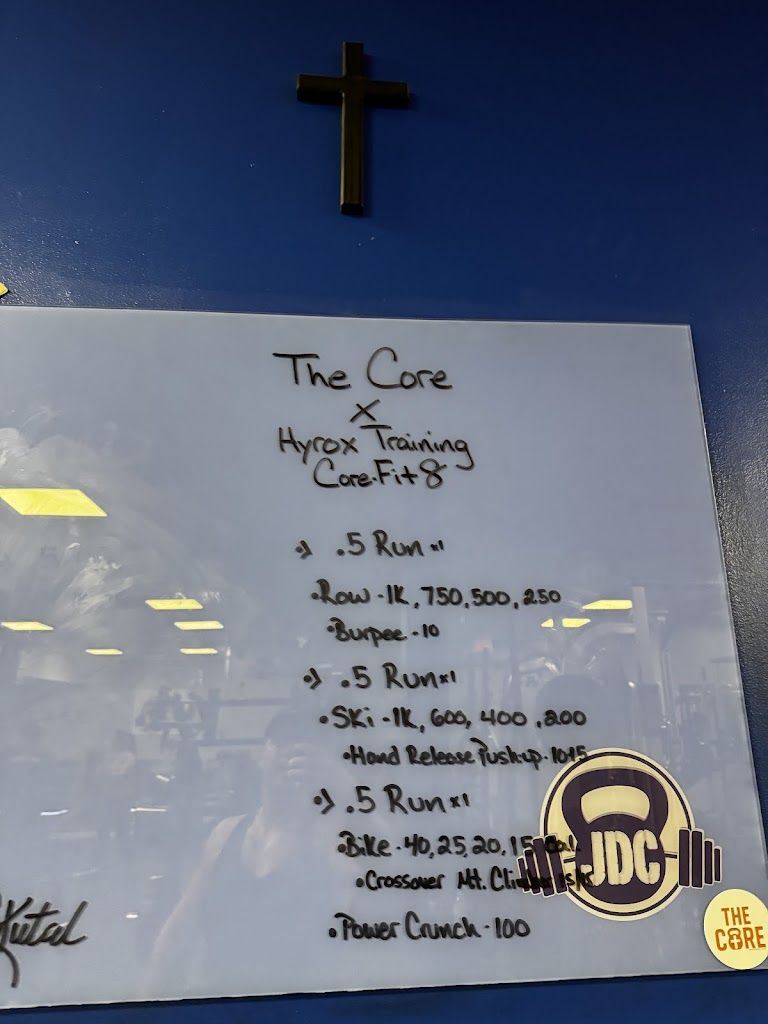 The Core
X
Hyrox Training
Core.Fit 8
.5 Run x1
• Row - 1K, 750, 500, 250
• Burpee - 10
.5 Run x1
• Ski - 1K, 600, 400, 200
• Hand Release Pushup - 10-15
.5 Run x1
• Bike - 40, 25, 20, 15 Cal.
• Crossover Mt. Climber
• Power Crunch - 100
JDC
THE
CORE